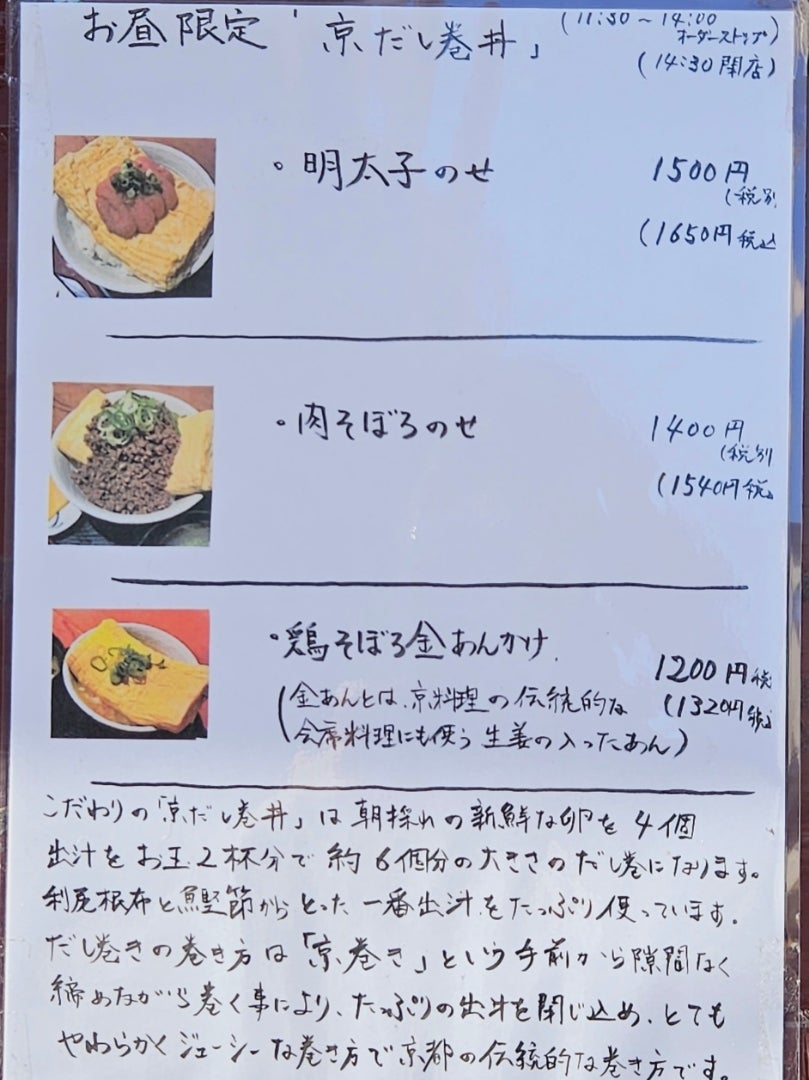 お昼限定「京だし巻丼」
(11:30～14:00
オーダーストップ)
(14:30閉店)
・明太子のせ
1500円
(税別
(1650円税込
・肉そぼろのせ
1400円
(税別
(1540円税
・鶏そぼろ金あんかけ
1200円税
(金あんとは、京料理の伝統的な
(1320円税
会席料理にも使う生姜の入ったあん)
こだわりの「京だし巻丼」は朝採れの新鮮な卵を4個
出汁をお玉2杯分で約6個分の大きさのだし巻になります。
利尻根布と鰹節からとった一番出汁をたっぷり使っています。
だし巻きの巻き方は「京巻き」という手前から隙間なく
締めながら巻く事により、たっぷりの出汁を閉じ込め、とても
やわらかくジューシーな巻き方で京都の伝統的な巻き方です。